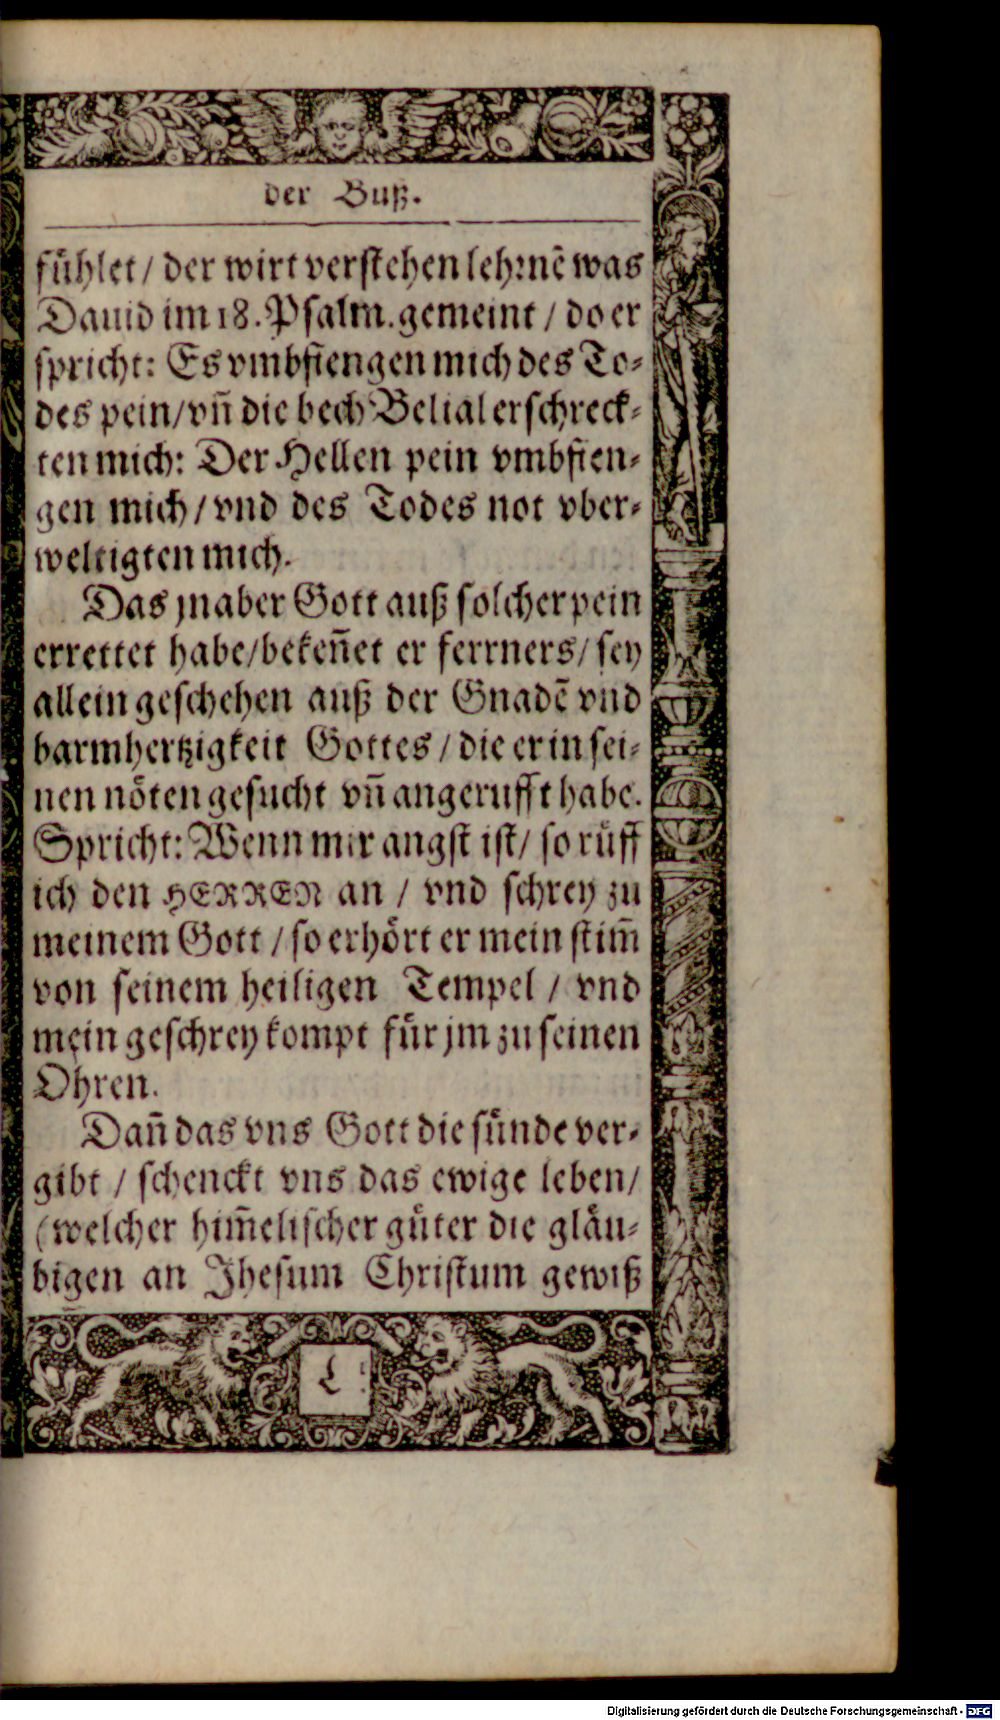 der Buß.
fühlet / der wirt verstehen lehrnē was
Dauid im 18. Psalm. gemeint / do er
spricht: Es vmbfiengen mich des To-
des pein / vñ die bech Belial erschreck-
ten mich: Der Hellen pein vmbfien-
gen mich / vnd des Todes not vber-
weltigten mich.
Das jn aber Gott auß solcher pein
errettet habe / bekeñet er ferrners / sey
allein geschehen auß der Gnadē vnd
barmhertzigkeit Gottes / die er in sei-
nen nöten gesucht vñ angerufft habe.
Spricht: Wenn mir angst ist / so rüff
ich den HERREN an / vnd schrey zu
meinem Gott / so erhört er mein stim̄
von seinem heiligen Tempel / vnd
mein geschrey kompt für jm zu seinen
Ohren.
Dañ das vns Gott die sünde ver-
gibt / schenckt vns das ewige leben /
(welcher him̄elischer güter die gläu-
bigen an Jhesum Christum gewiß
Digitalisierung gefördert durch die Deutsche Forschungsgemeinschaft - DFG